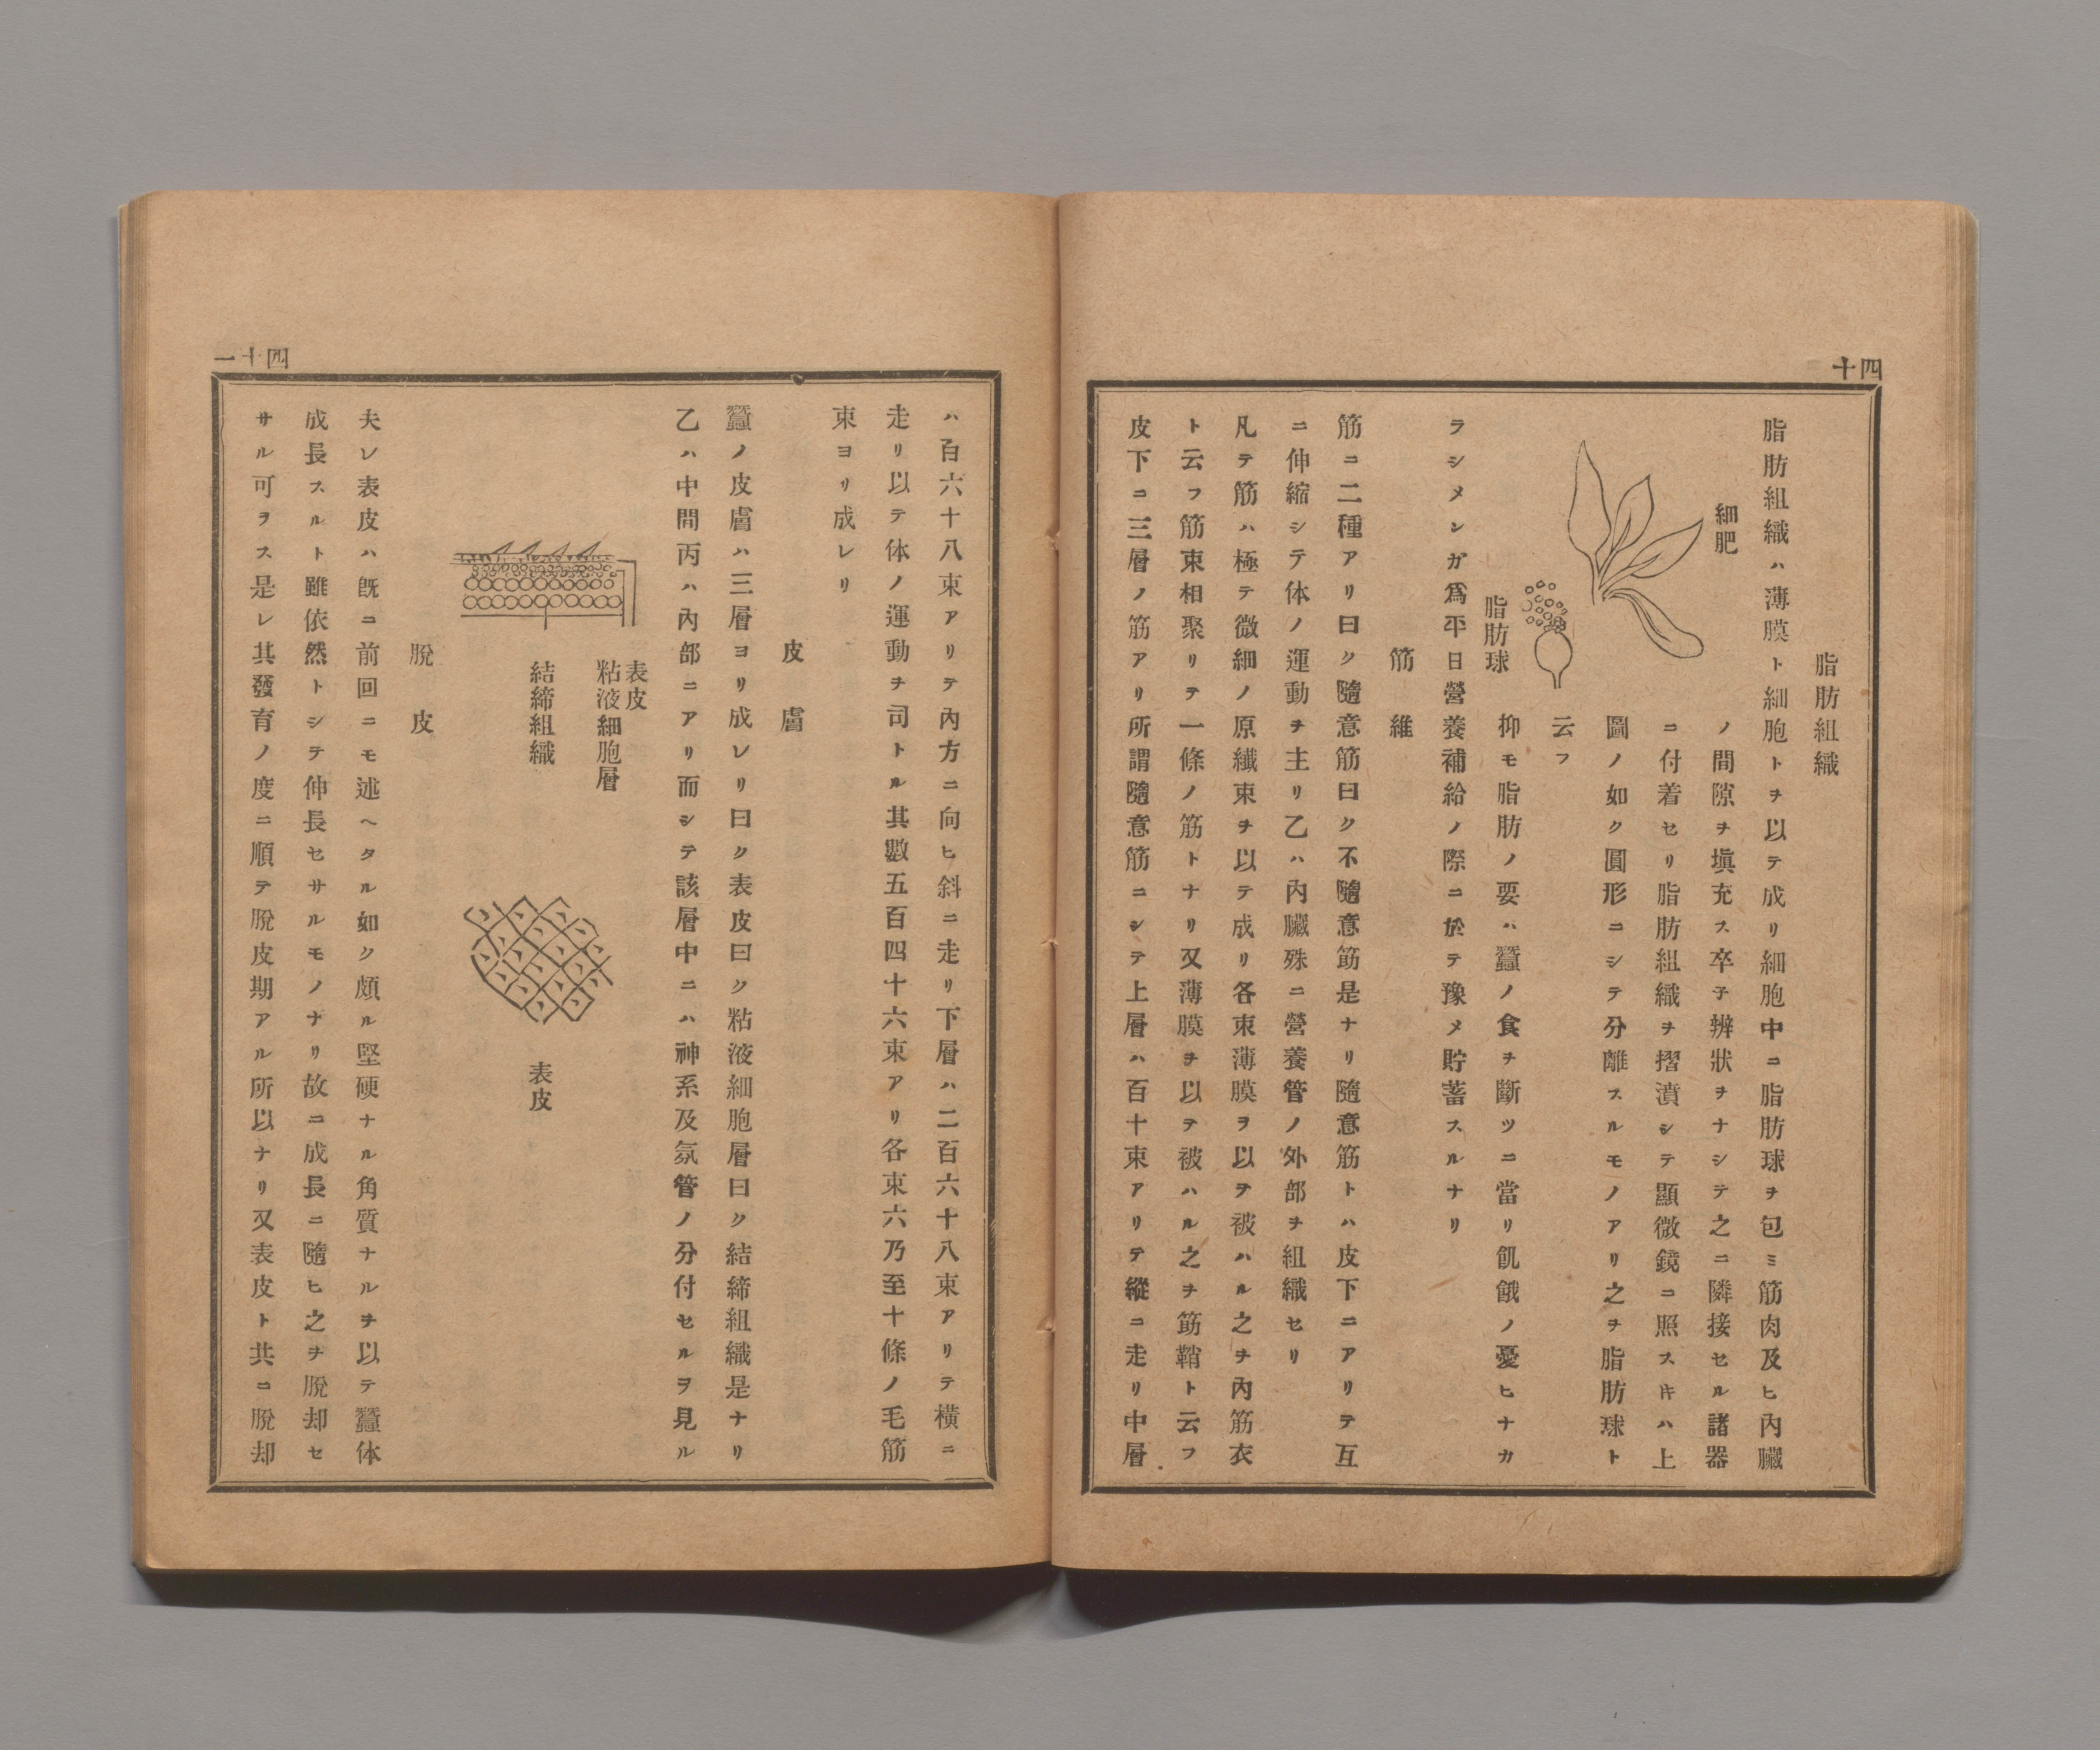 四十
脂肪組織
脂肪組織ハ薄膜ト細胞トヲ以テ成リ細胞中ニ脂肪球ヲ包ミ筋肉及ヒ內臟
ノ間隙ヲ塡充ス卒子辨狀ヲナシテ之ニ隣接セル諸器
ニ付着セリ脂肪組織ヲ摺潰シテ顯微鏡ニ照スキハ上
圖ノ如ク圓形ニシテ分離スルモノアリ之ヲ脂肪球ト
云フ
細肥
脂肪球
抑モ脂肪ノ要ハ蠶ノ食ヲ斷ツニ當リ飢餓ノ憂ヒナカ
ラシメンガ爲平日營養補給ノ際ニ於テ豫メ貯蓄スルナリ
筋維
筋ニ二種アリ曰ク隨意筋曰ク不隨意筋是ナリ隨意筋トハ皮下ニアリテ互
ニ伸縮シテ体ノ運動ヲ主リ乙ハ內臟殊ニ營養管ノ外部ヲ組織セリ
凡テ筋ハ極テ微細ノ原纖束ヲ以テ成リ各束薄膜ヲ以ヲ被ハル之ヲ內筋衣
ト云フ筋束相聚リテ一條ノ筋トナリ又薄膜ヲ以テ被ハル之ヲ筋鞘ト云フ
皮下ニ三層ノ筋アリ所謂隨意筋ニシテ上層ハ百十束アリテ縱ニ走リ中層
四十一
ハ百六十八束アリテ內方ニ向ヒ斜ニ走リ下層ハ二百六十八束アリテ橫ニ
走リ以テ体ノ運動ヲ司トル其數五百四十六束アリ各束六乃至十條ノ毛筋
束ヨリ成レリ
皮膚
蠶ノ皮膚ハ三層ヨリ成レリ曰ク表皮曰ク粘液細胞層曰ク結締組織是ナリ
乙ハ中間丙ハ內部ニアリ而シテ該層中ニハ神系及氣管ノ分付セルヲ見ル
表皮
粘液細胞層
結締組織
表皮
脫皮
夫レ表皮ハ旣ニ前回ニモ述ヘタル如ク頗ル堅硬ナル角質ナルヲ以テ蠶体
成長スルト雖依然トシテ伸長セサルモノナリ故ニ成長ニ隨ヒ之ヲ脫却セ
サル可ヲス是レ其發育ノ度ニ順テ脫皮期アル所以ナリ又表皮ト共ニ脫却